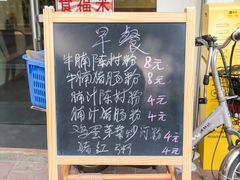 早餐
牛腩陈村粉 8元
牛腩猪肠粉 8元
腩汁陈村粉 4元
腩汁猪肠粉 4元
鸡蛋菜梗炒河粉 4元
猪红粥 4元